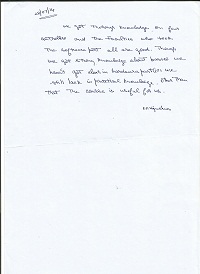 We get thorough knowledge on four
and the faculties who took
the software part all are good. Though
we got strong knowledge about basics we
haven't got about in hardware particular we
still lack in practical knowledge. Other than
that The course is useful for us.